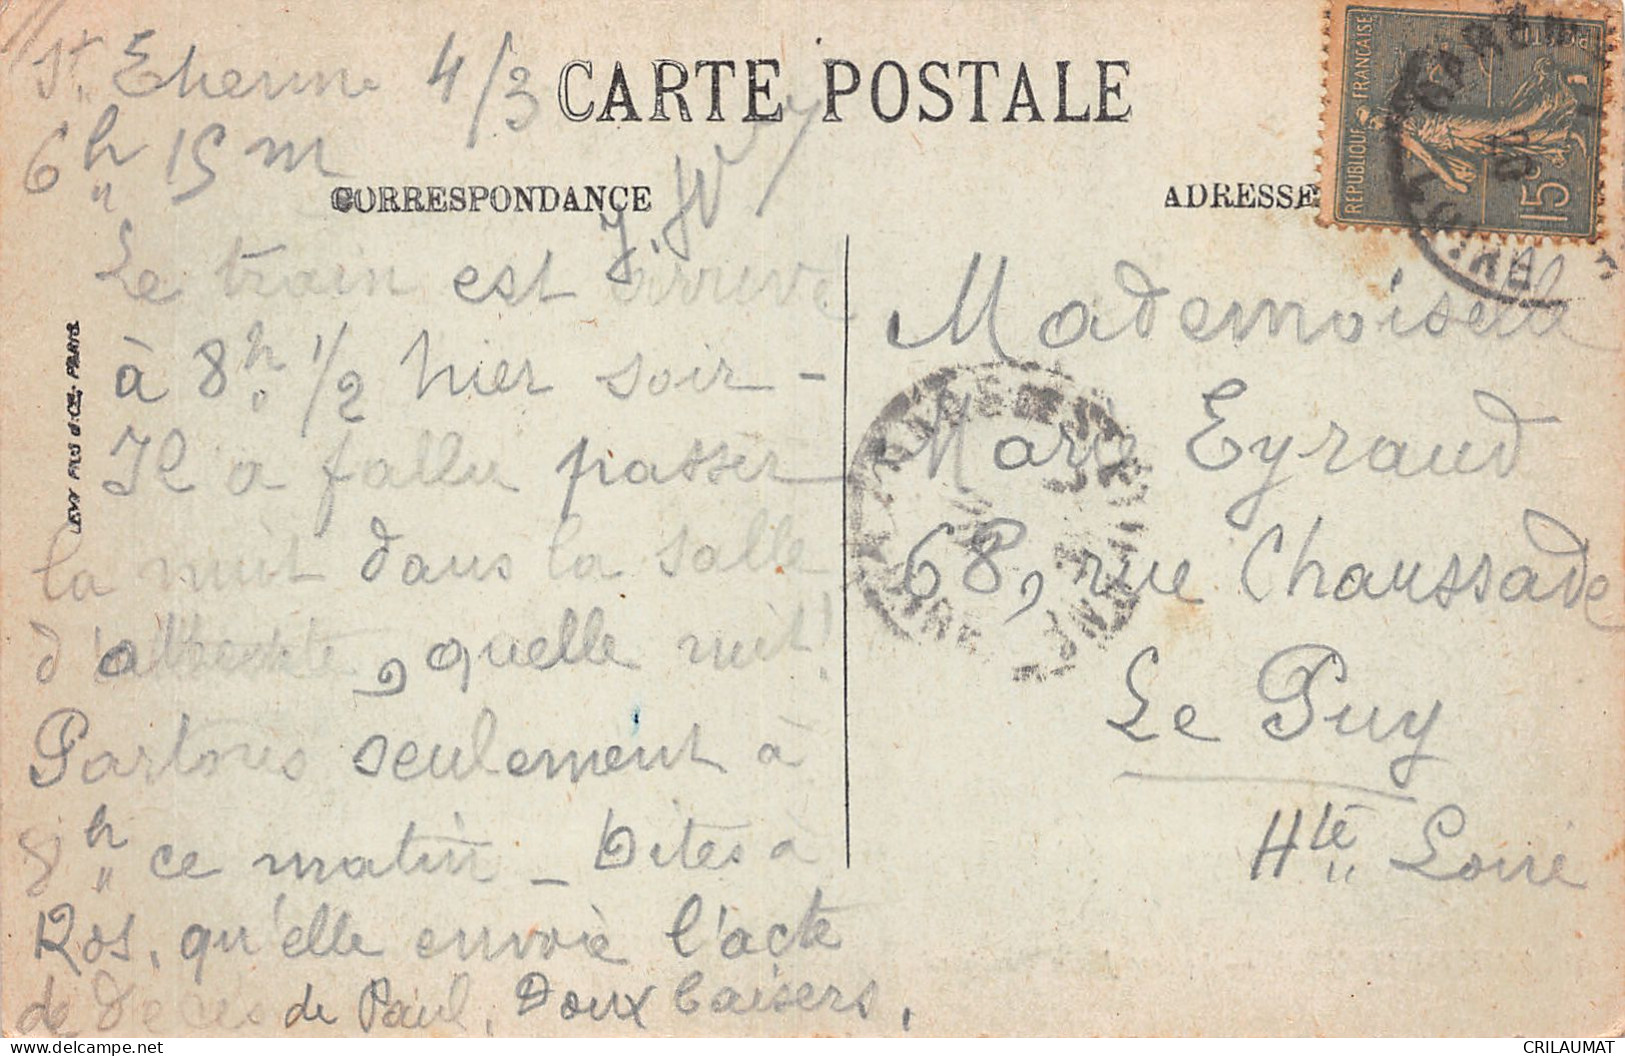 St. Etienne 4/3
6h 15m
CARTE POSTALE
CORRESPONDANCE
ADRESSE
REPUBLIQUE FRANÇAISE
POSTES
15c
Le train est arrivé
à 8h 1/2 hier soir -
Il a fallu passer
la nuit dans la salle
d'attente, quelle nuit!
Partons seulement à
8h ce matin - Dites à
Ros. qu'elle envoie l'acte
de décès de Paul. Doux baisers.
Mademoiselle
Marie Eyraud
68, rue Chaussade
Le Puy
Hte Loire
LEVY FILS & Cie. PARIS
CRILAUMAT